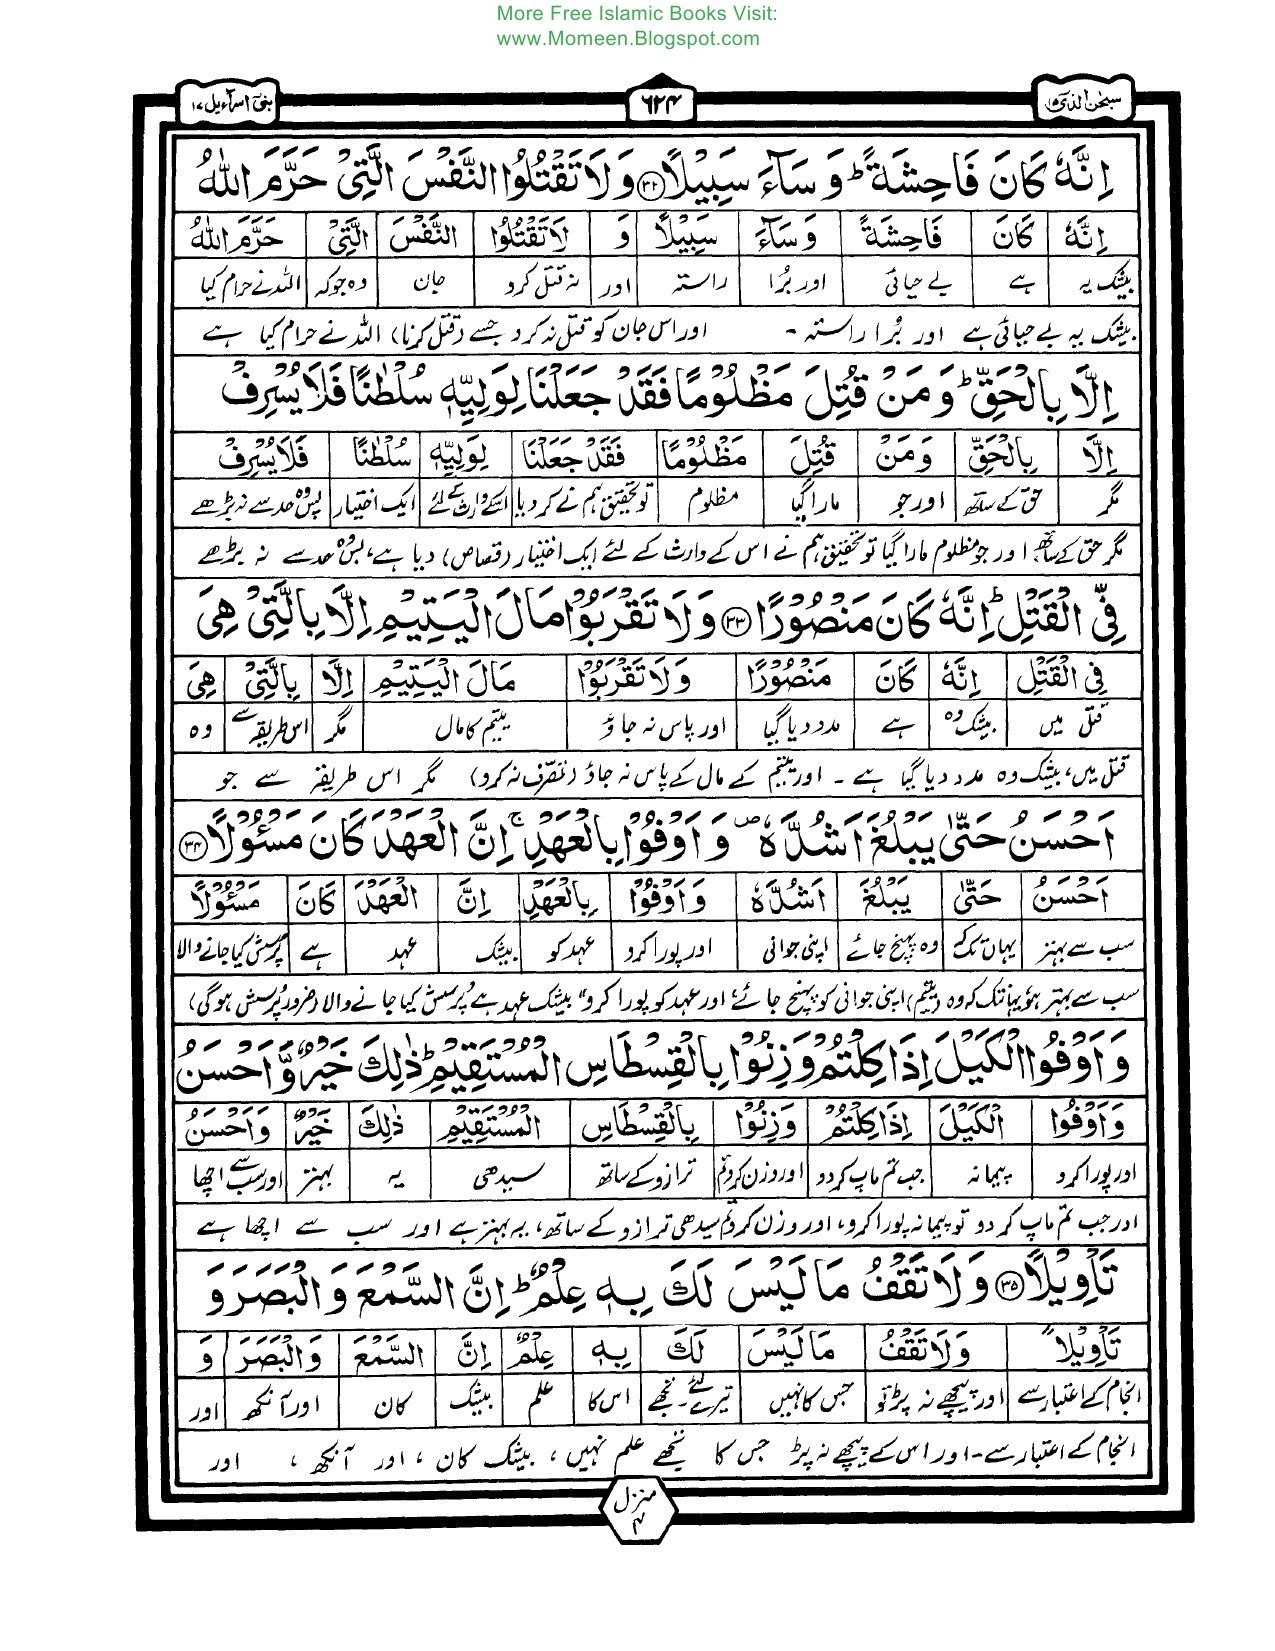 More Free Islamic Books Visit:
www.Momeen.Blogspot.com
سبحٰن الذی ۱۵
۶۲۴
بنی اسرآءیل ۱۷
اِنَّهٗ كَانَ فَاحِشَةً ؕ وَ سَآءَ سَبِیْلًا ﴿۳۲﴾ وَ لَا تَقْتُلُوا النَّفْسَ الَّتِیْ حَرَّمَ اللّٰهُ
اِنَّهٗ كَانَ فَاحِشَةً وَ سَآءَ سَبِیْلًا وَ لَا تَقْتُلُوا النَّفْسَ الَّتِیْ حَرَّمَ اللّٰهُ
بیشک یہ ہے بے حیائی اور بُرا راستہ اور نہ قتل کرو جان وہ جوکہ اللہ نے حرام کیا
بیشک یہ بے حیائی ہے اور بُرا راستہ - اور اس جان کو قتل نہ کرو جسے (قتل کرنا) اللہ نے حرام کیا ہے
اِلَّا بِالْحَقِّ ؕ وَ مَنْ قُتِلَ مَظْلُوْمًا فَقَدْ جَعَلْنَا لِوَلِیِّهٖ سُلْطٰنًا فَلَا یُسْرِفْ
اِلَّا بِالْحَقِّ وَ مَنْ قُتِلَ مَظْلُوْمًا فَقَدْ جَعَلْنَا لِوَلِیِّهٖ سُلْطٰنًا فَلَا یُسْرِفْ
مگر حق کے ساتھ اور جو مارا گیا مظلوم تو تحقیق ہم نے کردیا اسکے وارث کےلئے ایک اختیار پس وہ حد سے نہ بڑھے
مگر حق کے ساتھ، اور جو مظلوم مارا گیا تو تحقیق ہم نے اس کے وارث کے لئے ایک اختیار (قصاص) دیا ہے، پس وہ حد سے نہ بڑھے
فِّی الْقَتْلِ ؕ اِنَّهٗ كَانَ مَنْصُوْرًا ﴿۳۳﴾ وَ لَا تَقْرَبُوْا مَالَ الْیَتِیْمِ اِلَّا بِالَّتِیْ هِیَ
فِی الْقَتْلِ اِنَّهٗ كَانَ مَنْصُوْرًا وَ لَا تَقْرَبُوْا مَالَ الْیَتِیْمِ اِلَّا بِالَّتِیْ هِیَ
قتل میں بیشک وہ ہے مدد دیا گیا اور پاس نہ جاؤ یتیم کا مال مگر اس طریقے سے وہ
قتل میں، بیشک وہ مدد دیا گیا ہے - اور یتیم کے مال کے پاس نہ جاؤ (تصرّف نہ کرو) مگر اس طریقہ سے جو
اَحْسَنُ حَتّٰی یَبْلُغَ اَشُدَّهٗ ۪ وَ اَوْفُوْا بِالْعَهْدِ ۚ اِنَّ الْعَهْدَ كَانَ مَسْـُٔوْلًا ﴿۳۴﴾
اَحْسَنُ حَتّٰی یَبْلُغَ اَشُدَّهٗ وَ اَوْفُوْا بِالْعَهْدِ اِنَّ الْعَهْدَ كَانَ مَسْـُٔوْلًا
سب سے بہتر یہاں تک کہ وہ پہنچ جائے اپنی جوانی اور پورا کرو عہد کو بیشک عہد ہے پرسش کیا جانے والا
سب سے بہتر ہو، یہانتک کہ وہ (یتیم) اپنی جوانی کو پہنچ جائے، اور عہد کو پورا کرو، بیشک عہد ہے پُرسش کیا جانے والا (ضرور پُرسش ہوگی)
وَ اَوْفُوا الْكَیْلَ اِذَا كِلْتُمْ وَ زِنُوْا بِالْقِسْطَاسِ الْمُسْتَقِیْمِ ؕ ذٰلِكَ خَیْرٌ وَّ اَحْسَنُ
وَ اَوْفُوا الْكَیْلَ اِذَا كِلْتُمْ وَ زِنُوْا بِالْقِسْطَاسِ الْمُسْتَقِیْمِ ذٰلِكَ خَیْرٌ وَ اَحْسَنُ
اور پورا کرو پیمانہ جب تم ماپ کر دو اور وزن کرو تم ترازو کے ساتھ سیدھی یہ بہتر اور سب سے اچھا
اور جب تم ماپ کر دو تو پیمانہ پورا کرو، اور وزن کرو تم سیدھی ترازو کے ساتھ، یہ بہتر ہے اور سب سے اچھا ہے
تَاْوِیْلًا ﴿۳۵﴾ وَ لَا تَقْفُ مَا لَیْسَ لَكَ بِهٖ عِلْمٌ ؕ اِنَّ السَّمْعَ وَ الْبَصَرَ وَ
تَاْوِیْلًا وَ لَا تَقْفُ مَا لَیْسَ لَكَ بِهٖ عِلْمٌ اِنَّ السَّمْعَ وَ الْبَصَرَ وَ
انجام کے اعتبار سے اور پیچھے نہ پڑ تو جس کا نہیں تیرے لئے۔ تجھے اس کا علم بیشک کان اور آنکھ اور
انجام کے اعتبار سے - اور اس کے پیچھے نہ پڑ جس کا تجھے علم نہیں، بیشک کان، اور آنکھ، اور
منزل
۴